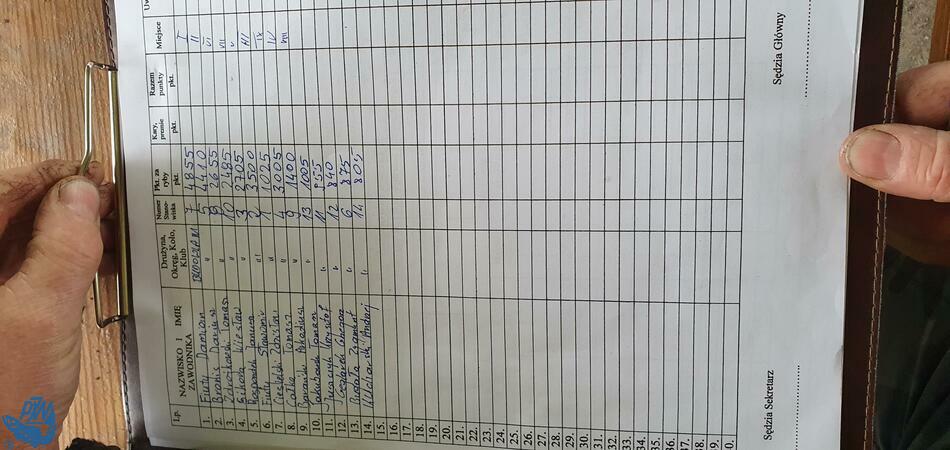 Lp. NAZWISKO I IMIĘ ZAWODNIKA Drużyna, Okręg, Koło, Klub Numer Stanowiska Pkt. za ryby pkt. Kary, premie pkt. Razem punkty pkt. Miejsce
1. Fiuty Damian 7 4855 I
2. Bronis Dariusz " 5 4410 II
3. Tomasz " 2655 VI
4. Wiesław " 10 2485 VII
5. Janusz " 3 2705 V
6. Fiuty Sławomir " 2 3500 III
7. Ciesielski Zdzisław " 1 1025 IX
8. Całka Tomasz " 4 3005 IV
9. Arkadiusz " 9 1400 VIII
10. Jakubowski Tomasz " 13 1005
11. Krzysztof " 11 955
12. Grzegorz " 12 840
13. Zygmunt " 6 875
14. Andrzej " 14 805
15.
16.
17.
18.
19.
20.
21.
22.
23.
24.
25.
26.
27.
28.
29.
30.
31.
32.
33.
34.
35.
36.
37.
38.
39.
Sędzia Sekretarz
Sędzia Główny
PZW